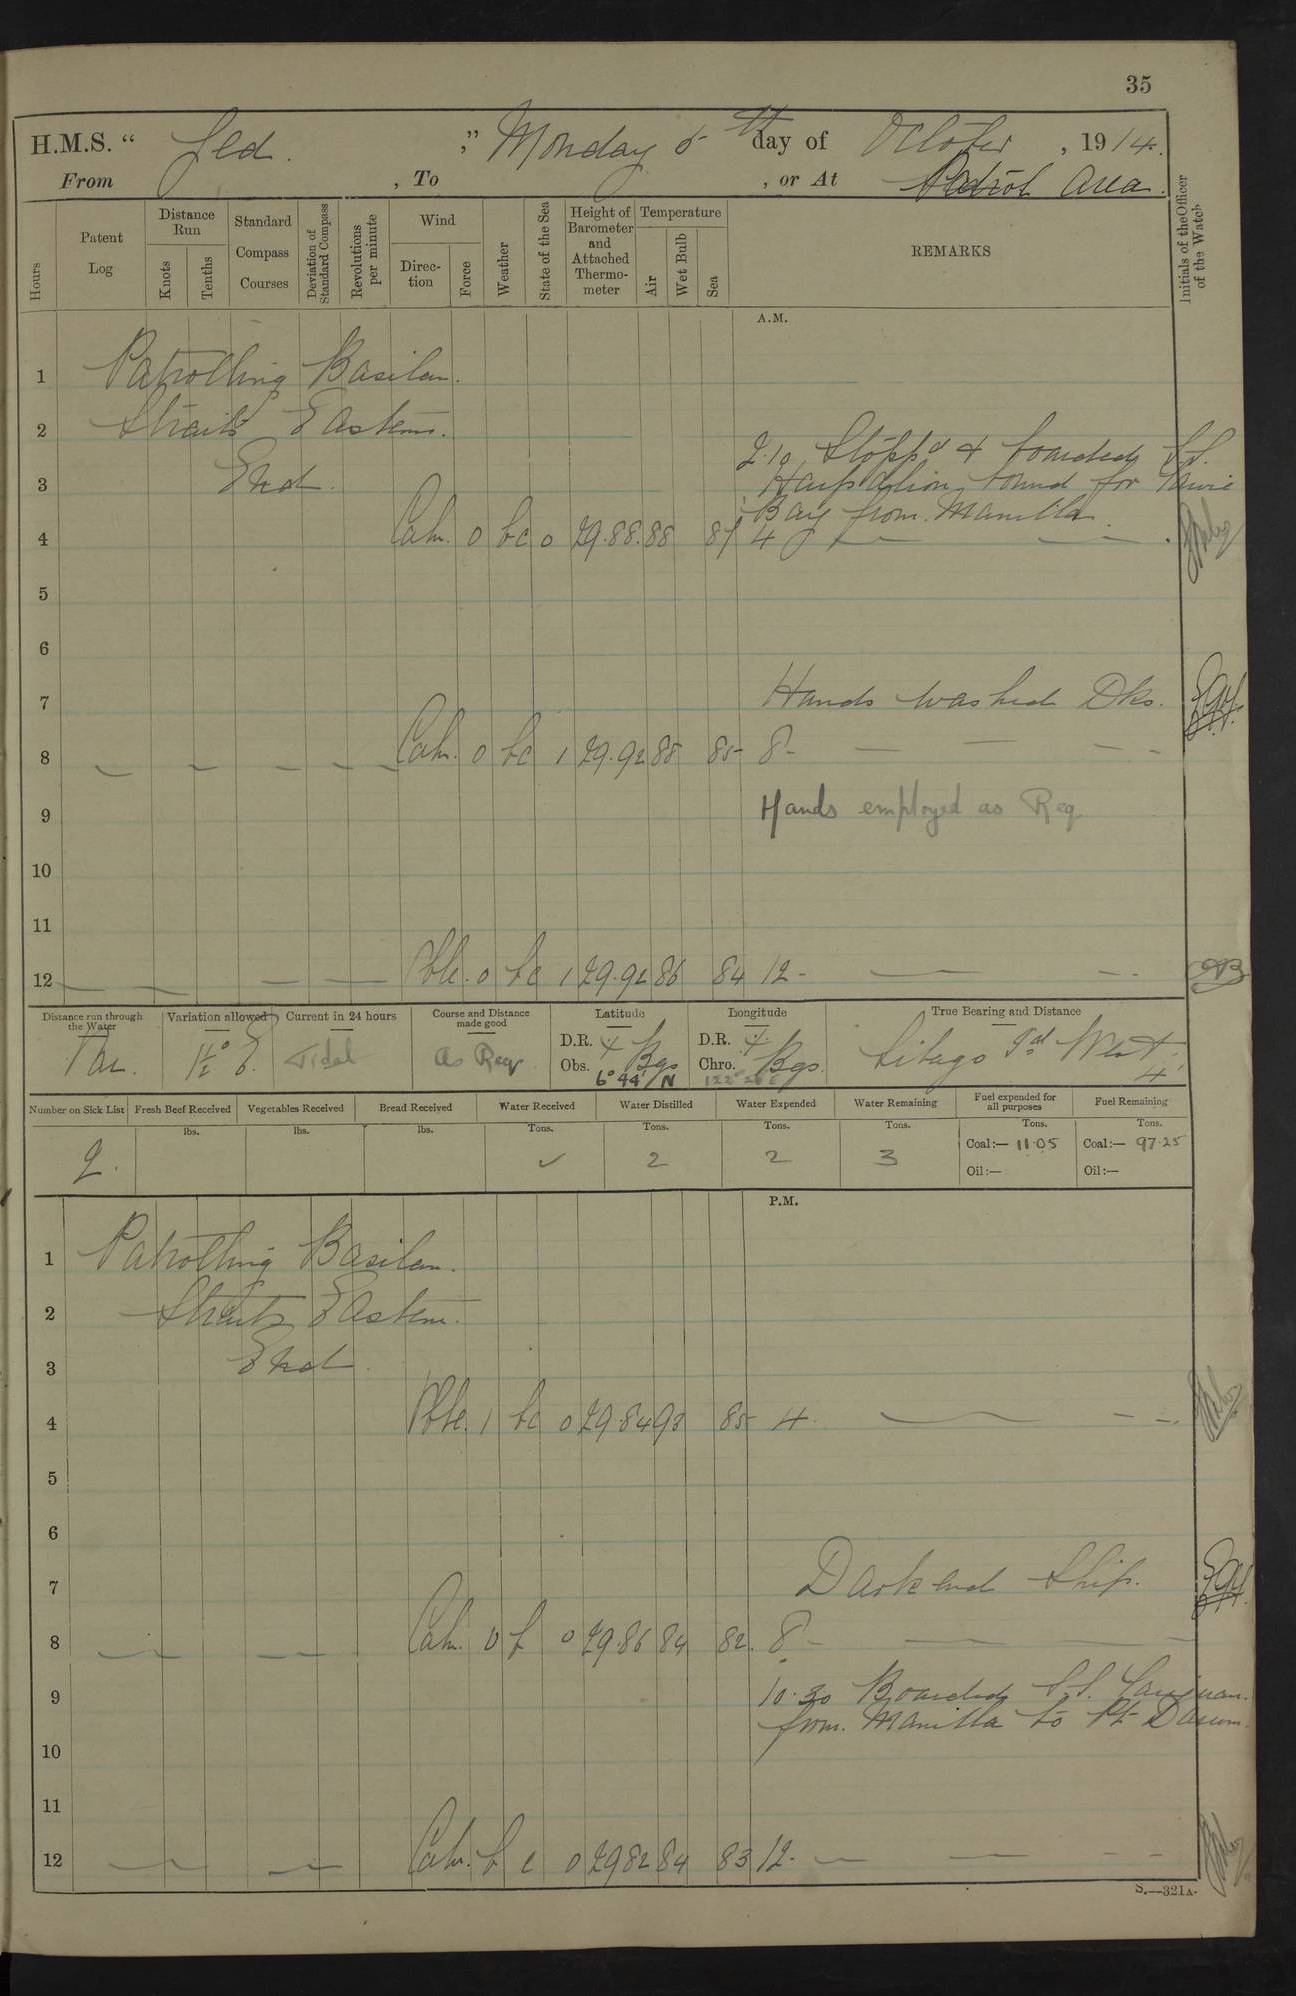 35
H.M.S. " Jed. ," Monday 5th day of October , 1914.
From , To , or At Patrol Area.
Hours
Patent Log
Distance Run
Knots
Tenths
Standard Compass Courses
Deviation of Standard Compass
Revolutions per minute
Wind
Direction
Force
Weather
State of the Sea
Height of Barometer and Attached Thermometer
Temperature
Air
Wet Bulb
Sea
REMARKS
Initials of the Officer of the Watch
A.M.
1 Patrolling Basilan.
2 Straits Eastern.
2.10 Stopp'd & boarded S.S.
3 End. Harpalion bound for
Bay from Manilla.
4 Calm. 0 bc 0 29.88. 88 84 4
5
6
7 Hands washed Dks.
8 Calm. 0 bc 1 29.92 88 85 8-
9 Hands employed as Req
10
11
12 Vble. 0 bc 1 29.92 86 84 12-
Distance run through the Water
Variation allowed 1½° E.
Current in 24 hours Tidal
Course and Distance made good As Req
Latitude
D.R.
Obs. Bgs
6° 44' N
Longitude
D.R.
Chro. Bgs.
True Bearing and Distance
Sibago Id West
4'
Number on Sick List 2.
Fresh Beef Received lbs.
Vegetables Received lbs.
Bread Received lbs.
Water Received Tons. ✓
Water Distilled Tons. 2
Water Expended Tons. 2
Water Remaining Tons. 3
Fuel expended for all purposes Tons.
Coal:— 11.05
Oil:—
Fuel Remaining Tons.
Coal:— 97.25
Oil:—
P.M.
1 Patrolling Basilan.
2 Straits Eastern.
3 End.
4 Vble. 1 bc 0 29.84 93 85 4
5
6
7 Darkend Ship.
8 Calm. 0 b 0 29.86 84 82. 8-
9 10.30 Boarded S.S.
from Manilla to Pt
10
11
12 Calm. b c 0 29 82 84 83 12.
S.—321A.